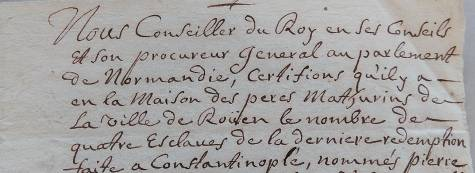 Nous Conseiller du Roy en ses Conseils
Et son procureur General au parlement
de Normandie, Certifions qu'il y a
en la Maison des peres Mathurins de
La Ville de Roüen le nombre de
quatre Esclaves de la derniere redemption
faite a Constantinople, nommés pierre